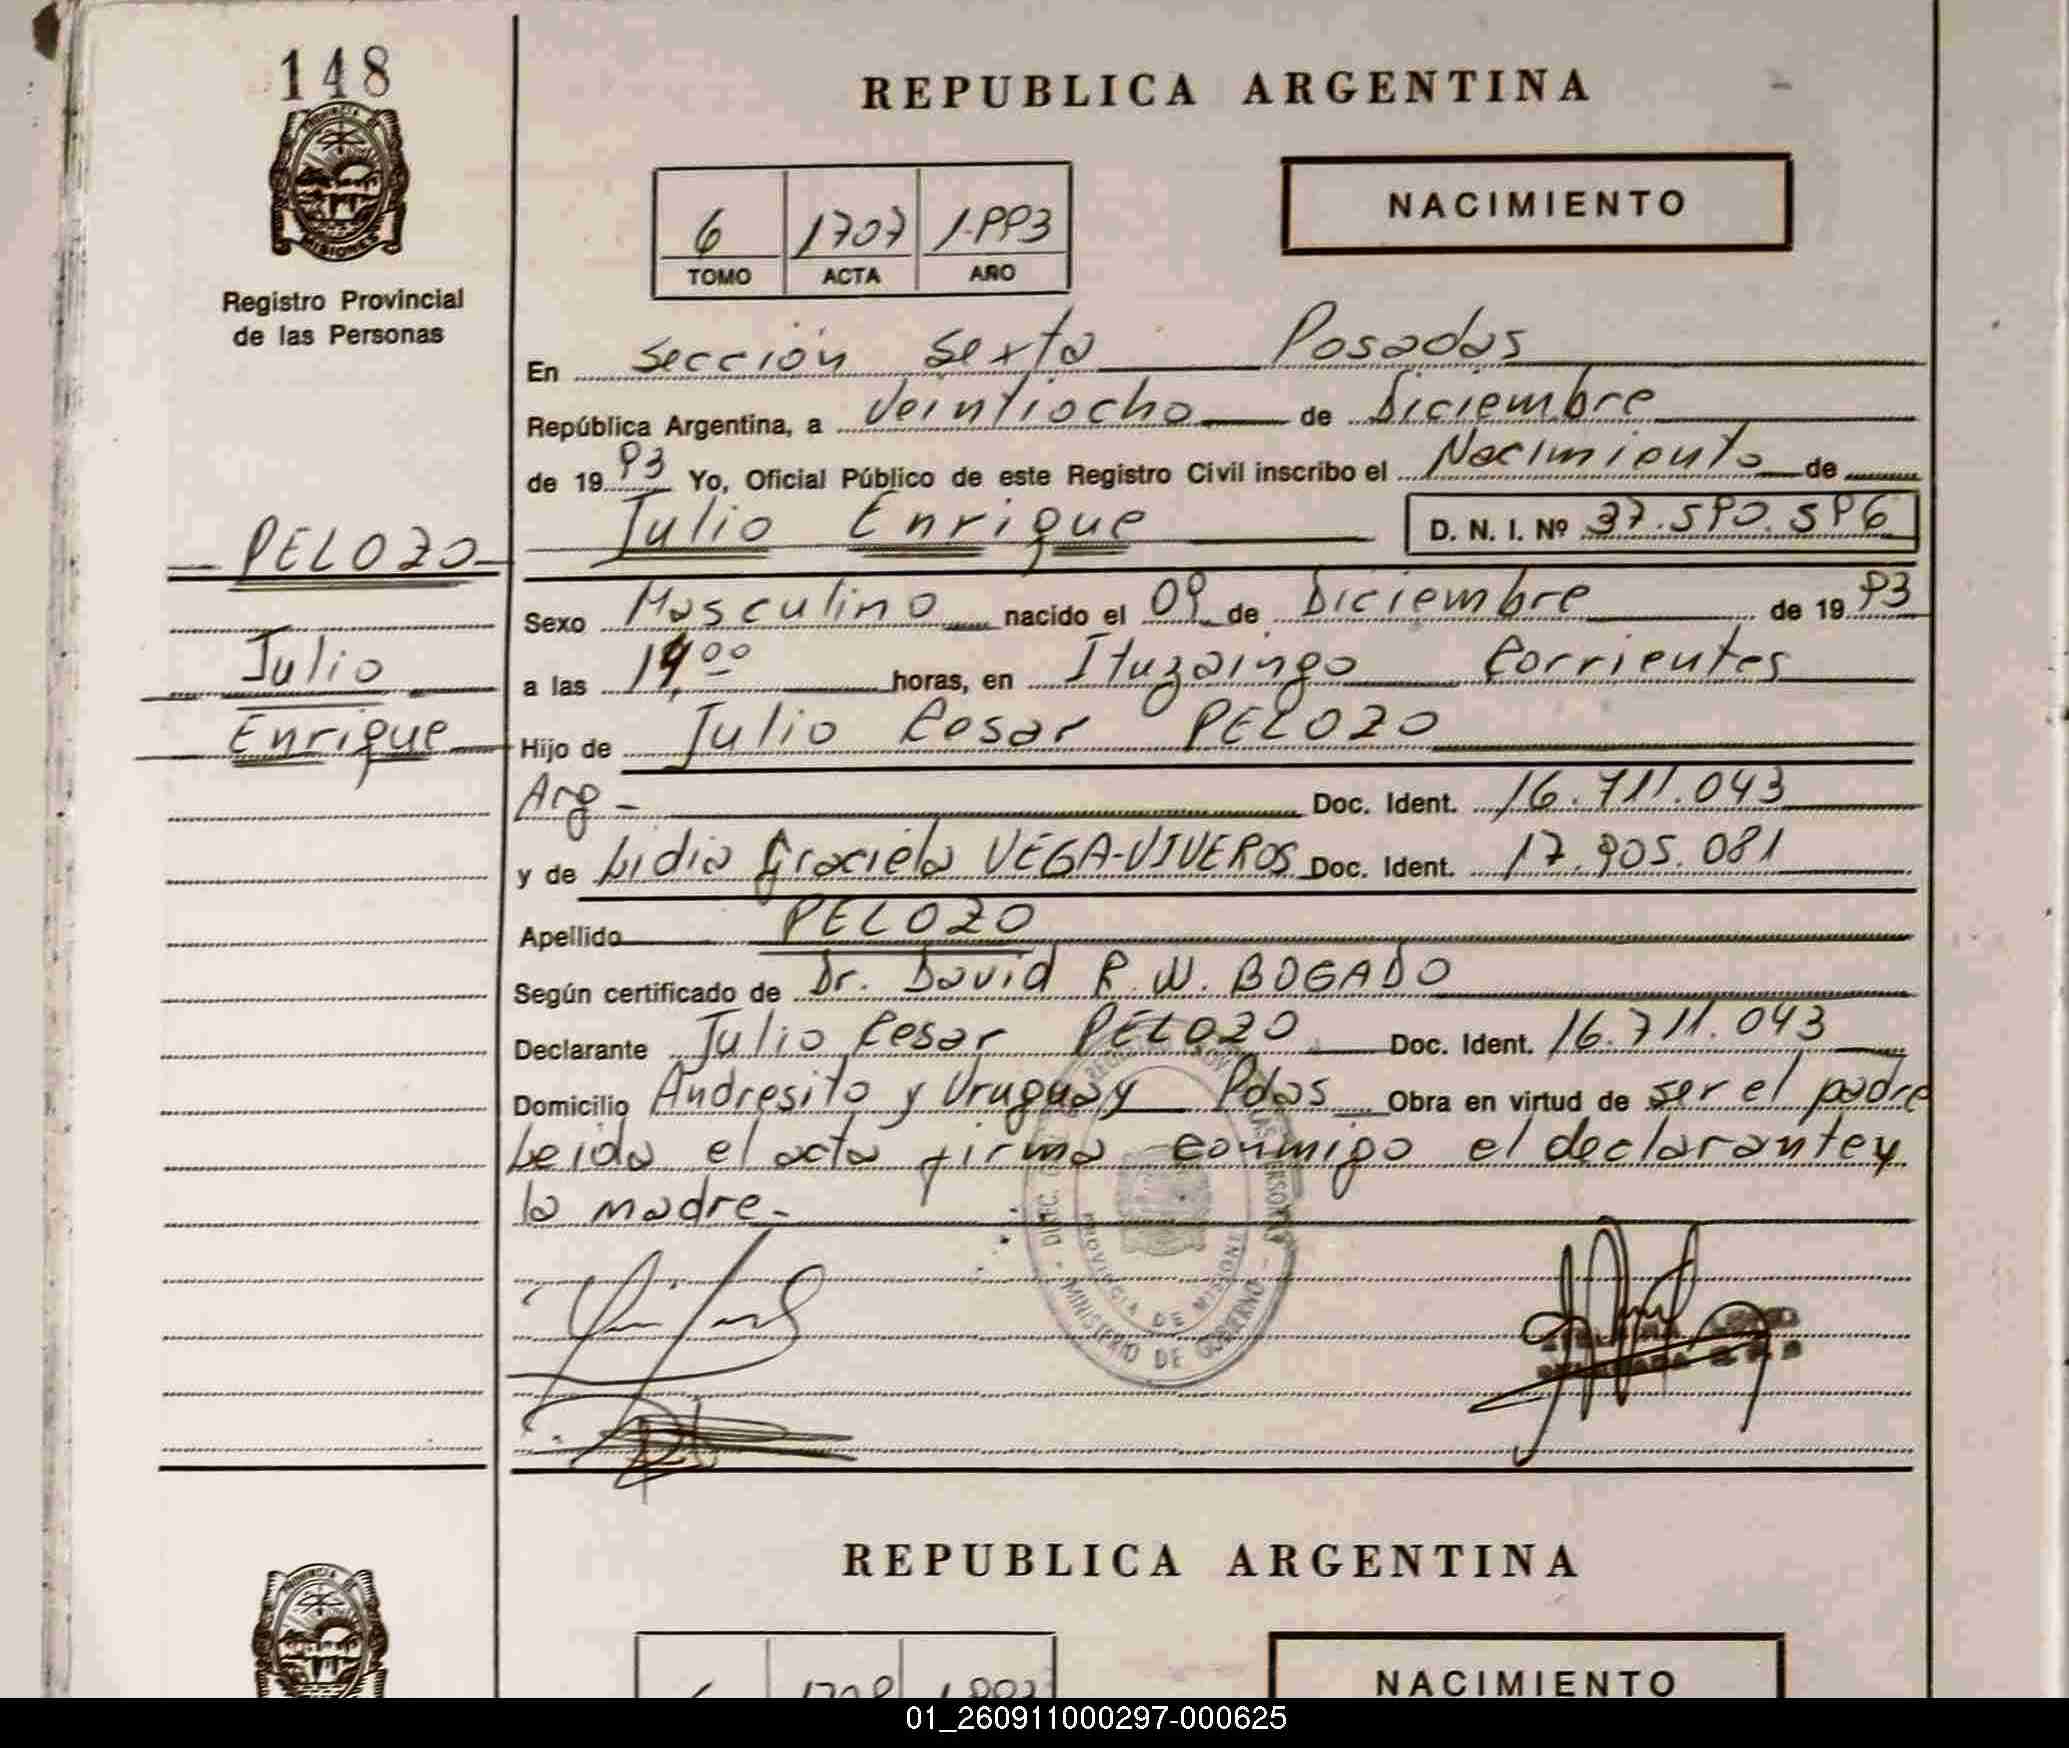 148
PROVINCIA DE
MISIONES
Registro Provincial
de las Personas
REPUBLICA ARGENTINA
NACIMIENTO
6 1707 1.993
TOMO ACTA AÑO
En Sección Sexta Posadas
República Argentina, a Veintiocho de Diciembre
de 1993 Yo, Oficial Público de este Registro Civil inscribo el Nacimiento de
Julio Enrique D. N. I. Nº 37.590.596
PELOZO
Julio
Enrique
Sexo Masculino nacido el 09 de Diciembre de 1993
a las 14,00 horas, en Ituzaingo Corrientes
Hijo de Julio Cesar PELOZO
Arg - Doc. Ident. 16.711.043
y de Lidia Graciela VEGA-VIVEROS Doc. Ident. 17.905.081
Apellido PELOZO
Según certificado de Dr. David R. W. BOGADO
Declarante Julio Cesar PELOZO Doc. Ident. 16.711.043
Domicilio Andresito y Uruguay Pdas Obra en virtud de ser el padre
Leida el acta firma conmigo el declarante y
la madre-
PROVINCIA DE MISIONES
MINISTERIO DE GOBIERNO
REPUBLICA ARGENTINA
PROVINCIA DE
NACIMIENTO
1708
01_260911000297-000625